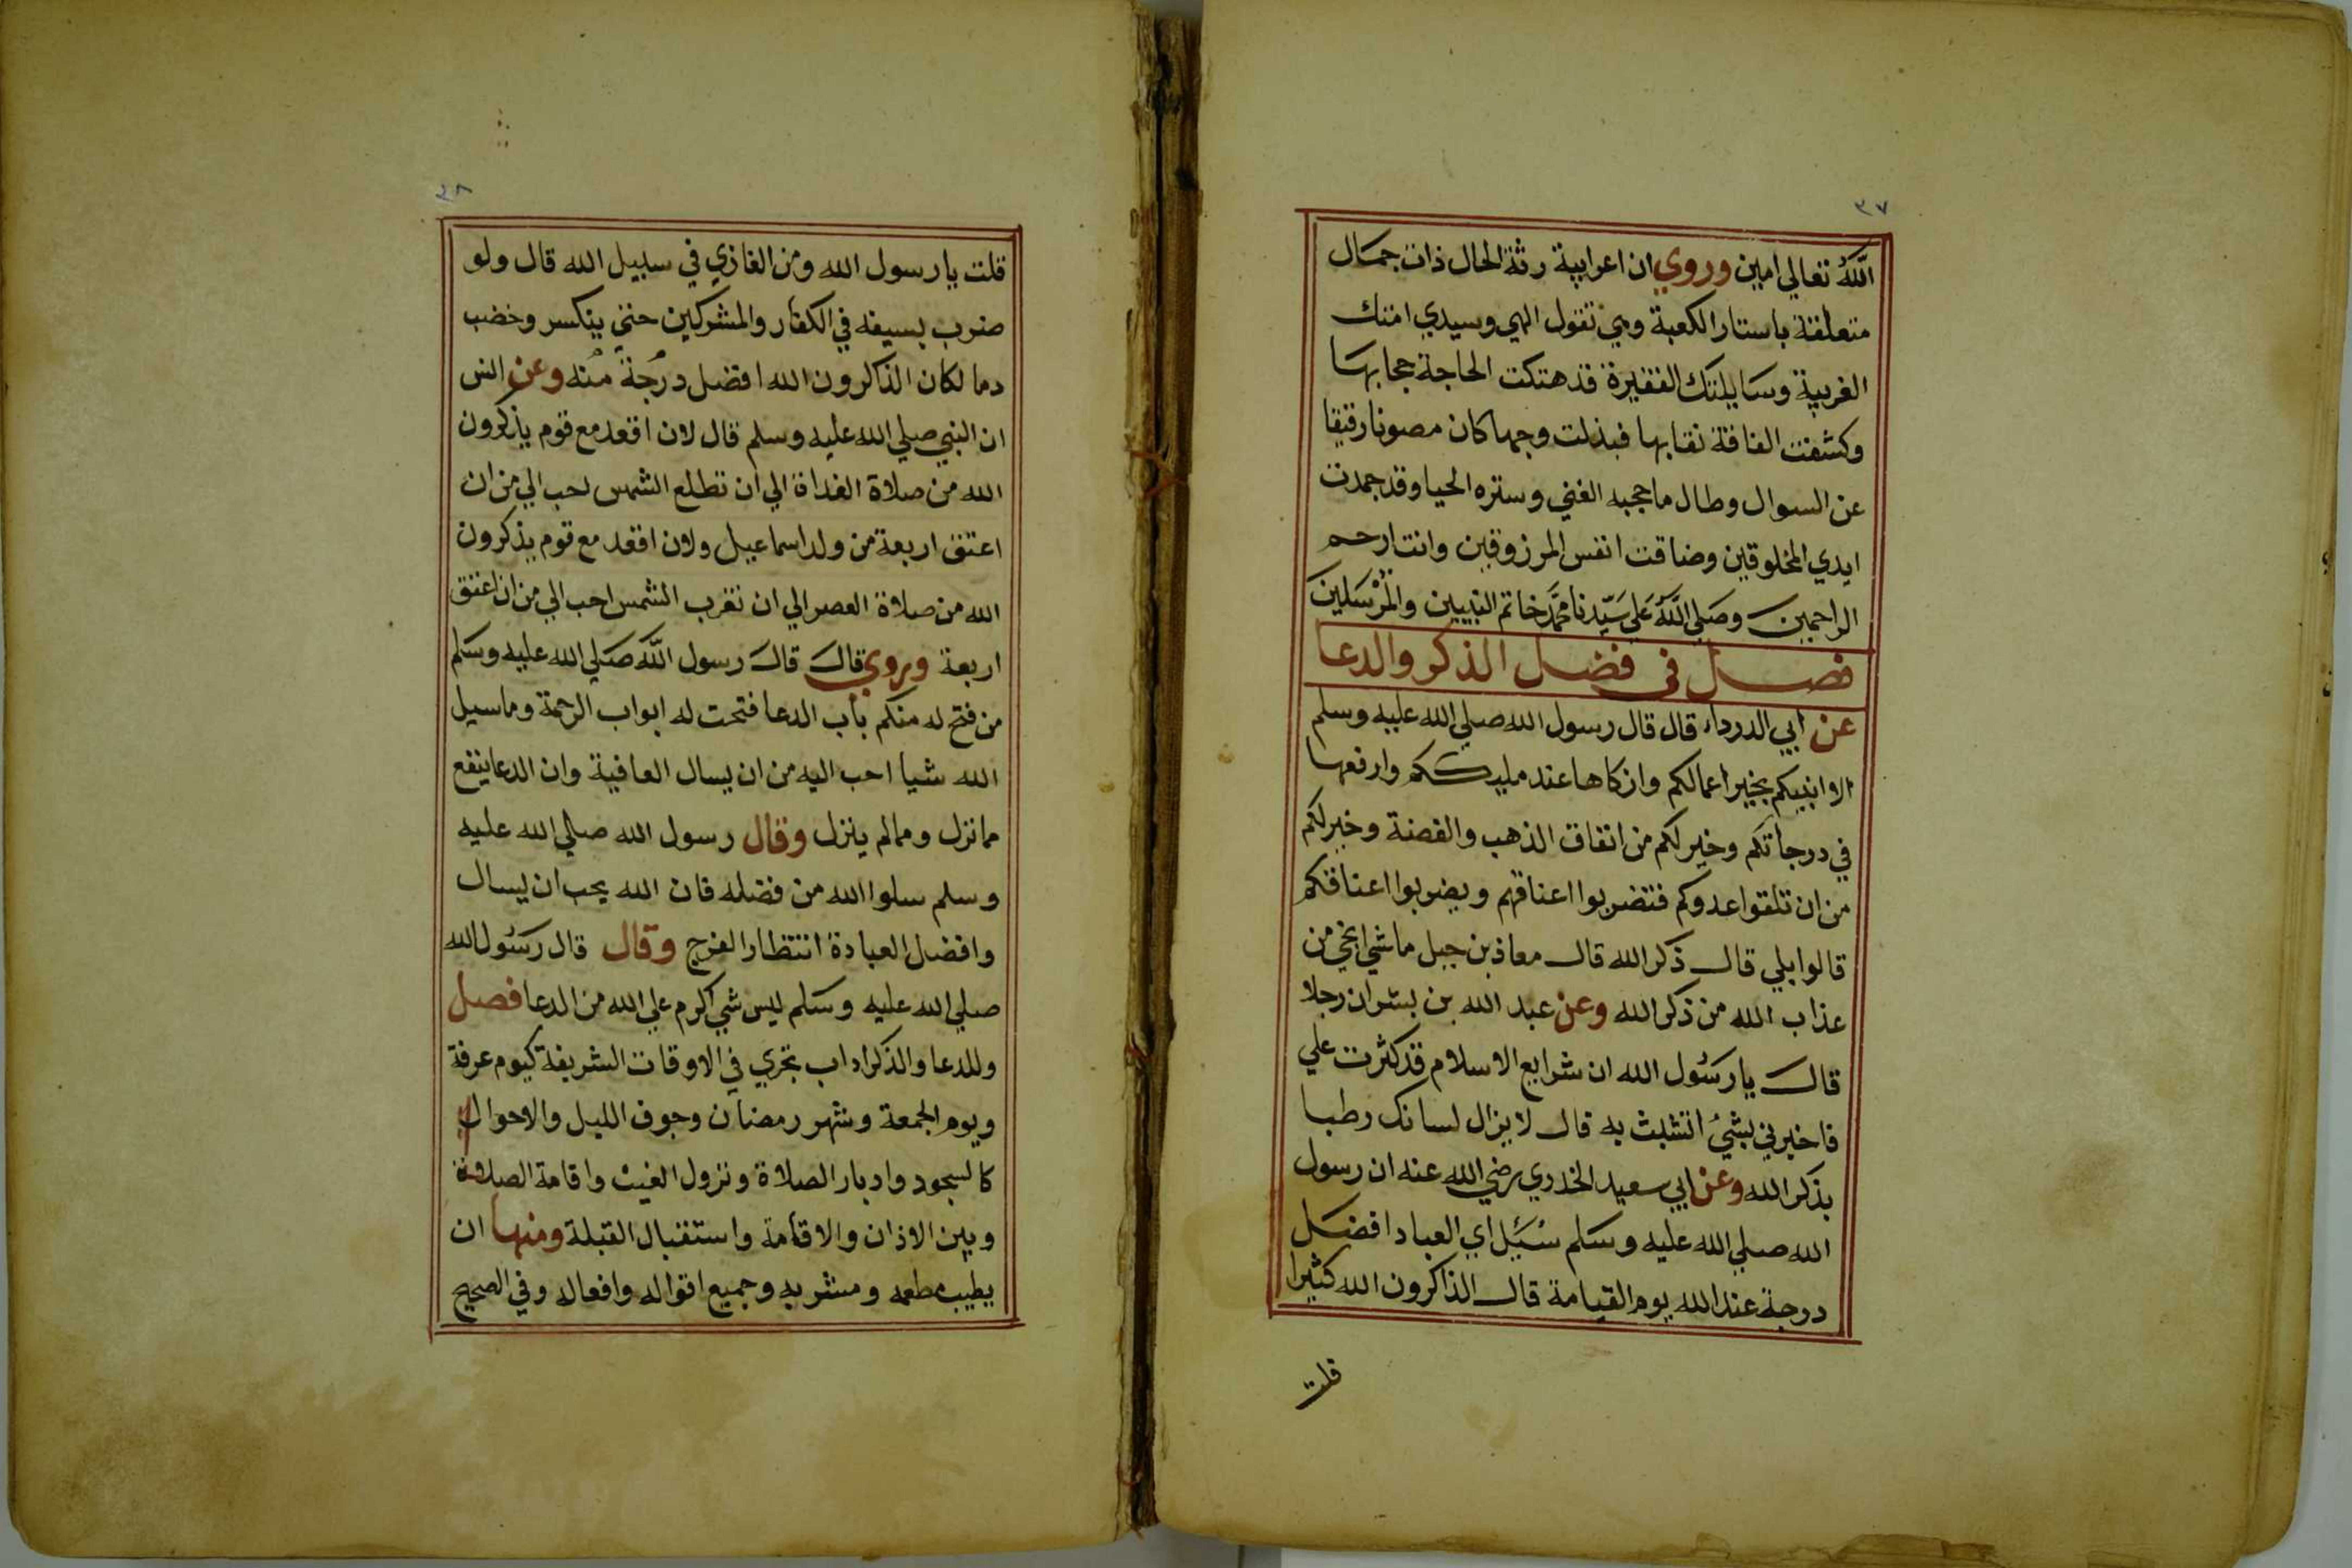 ٣٧
الله تعالي امين وروي ان اعرابية رثة الحال ذات جمال
متعلقة باستار الكعبة وهي تقول الهي وسيدي امتك
الغريبة وسايلتك الفقيرة قد هتكت الحاجة حجابها
وكشفت الفاقة نقابها فبذلت وجها كان مصونا رقيقا
عن السوال وطال ما حجبه الغني وستره الحيا وقد جمدت
ايدي المخلوقين وضاقت انفس المرزوقين وانت ارحم
الراحمين وصلي الله علي سيدنا محمد خاتم النبيين والمرسلين
فصل في فضل الذكر والدعا
عن ابي الدرداء قال قال رسول الله صلي الله عليه وسلم
الا انبيكم بخير اعمالكم وازكاها عند مليككم وارفعها
في درجاتكم وخير لكم من انفاق الذهب والفضة وخير لكم
من ان تلقوا عدوكم فتضربوا اعناقهم ويضربوا اعناقكم
قالوا بلي قال ذكر الله قال معاذ بن جبل ما شي انجي من
عذاب الله من ذكر الله وعن عبد الله بن بشر ان رجلا
قال يا رسول الله ان شرايع الاسلام قد كثرت علي
فاخبرني بشيء اتشبث به قال لا يزال لسانك رطبا
بذكر الله وعن ابي سعيد الخدري رضي الله عنه ان رسول
الله صلي الله عليه وسلم سئيل اي العباد افضل
درجة عند الله يوم القيامة قال الذاكرون الله كثيرا
قلت
٣٨
قلت يا رسول الله ومن الغازي في سبيل الله قال ولو
ضرب بسيفه في الكفار والمشركين حتي ينكسر وخضب
دما لكان الذاكرون الله افضل درجة منه وعن انس
ان النبي صلي الله عليه وسلم قال لان اقعد مع قوم يذكرون
الله من صلاة الغداة الي ان تطلع الشمس احب الي من ان
اعتق اربعة من ولد اسماعيل ولان اقعد مع قوم يذكرون
الله من صلاة العصر الي ان تغرب الشمس احب الي من ان اعتق
اربعة وروي قال قال رسول الله صلي الله عليه وسلم
من فتح له منكم باب الدعا فتحت له ابواب الرحمة وما سيل
الله شيا احب اليه من ان يسال العافية وان الدعا ينفع
مما نزل ومما لم ينزل وقال رسول الله صلي الله عليه
وسلم سلوا الله من فضله فان الله يحب ان يسال
وافضل العبادة انتظار الفرج وقال قال رسول الله
صلي الله عليه وسلم ليس شي اكرم علي الله من الدعا فصل
وللدعا والذكر اداب تجري في الاوقات الشريفة كيوم عرفة
ويوم الجمعة وشهر رمضان وجوف الليل والاحوال
كالسجود وادبار الصلاة ونزول الغيث واقامة الصلاة
وبين الاذان والاقامة واستقبال القبلة ومنها ان
يطيب مطعمه ومشربه وجميع اقواله وافعاله وفي الصحيح